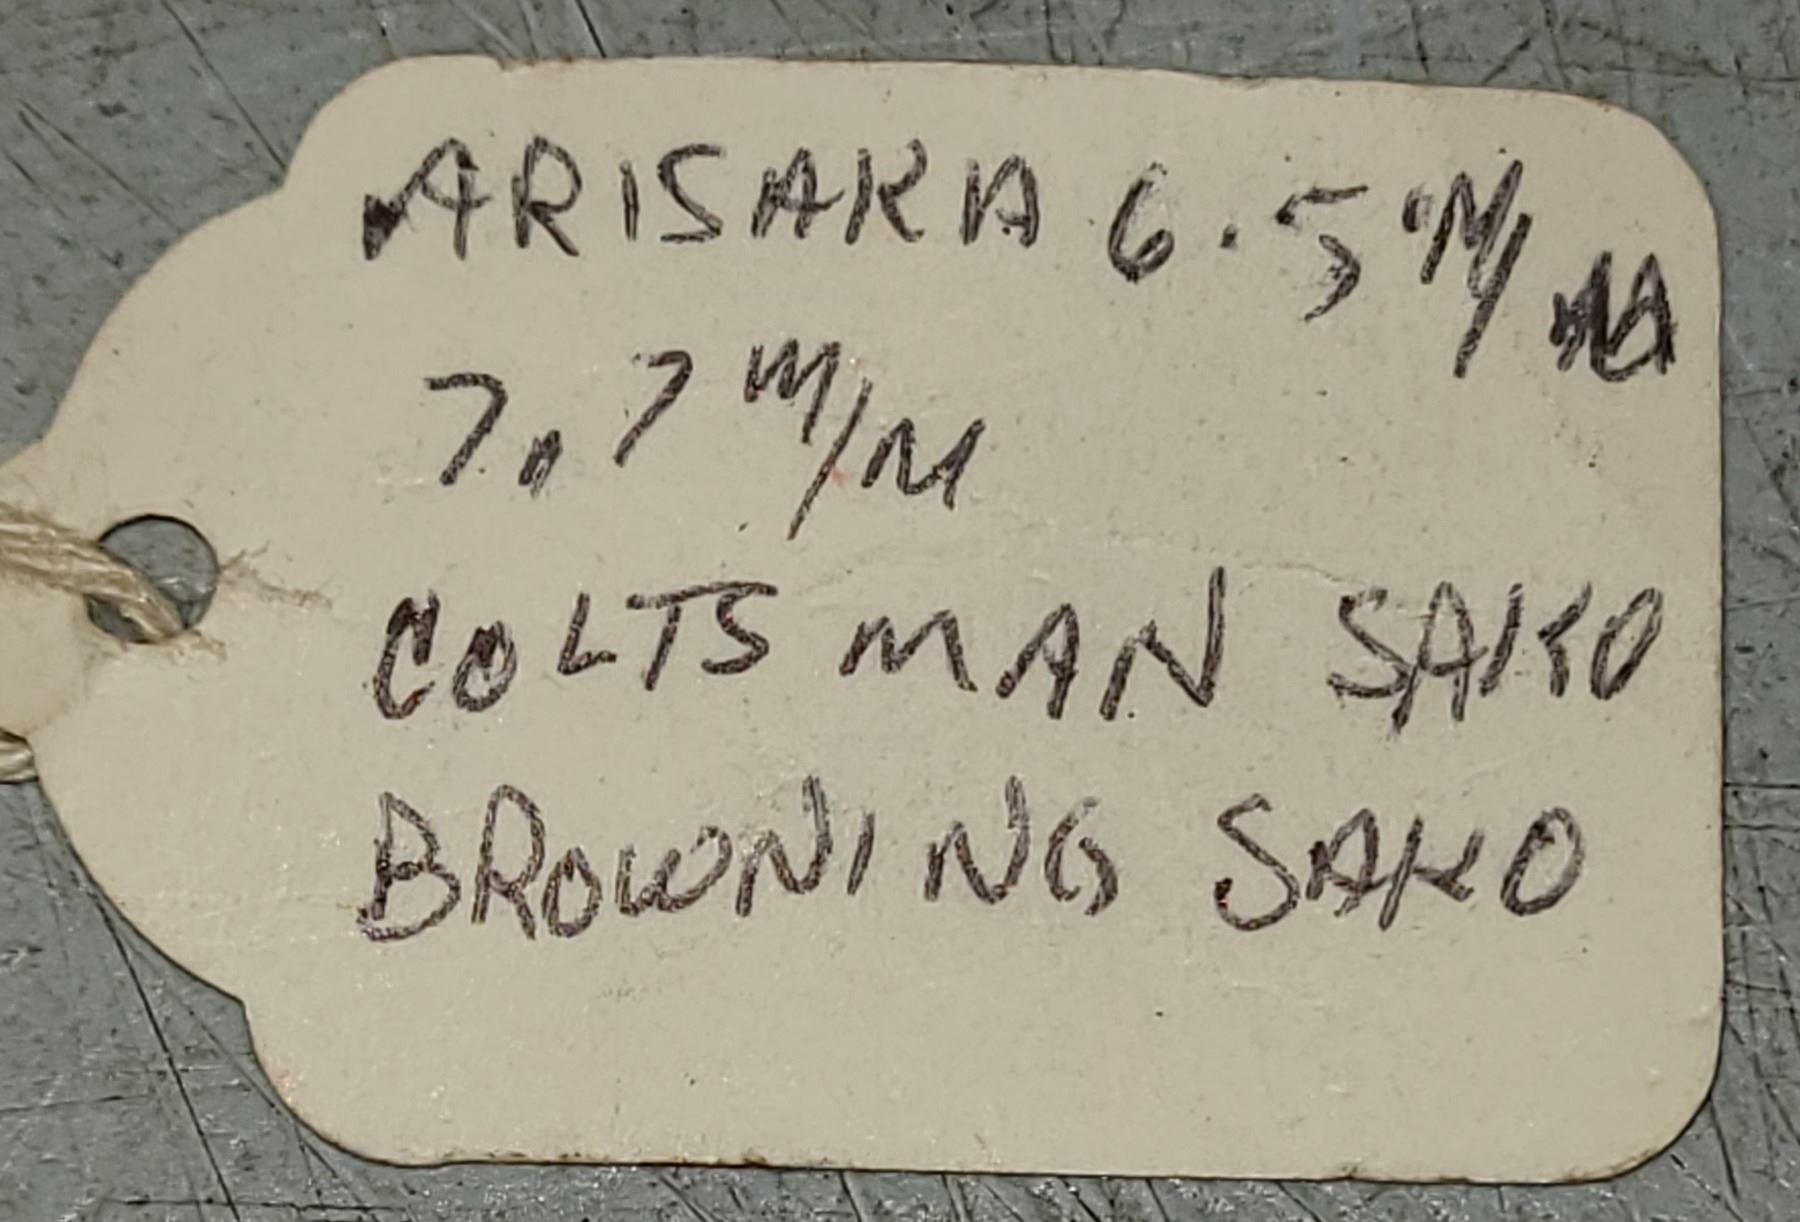 ARISAKA 6.5 M/M
7.7 M/M
COLTSMAN SAKO
BROWNING SAKO